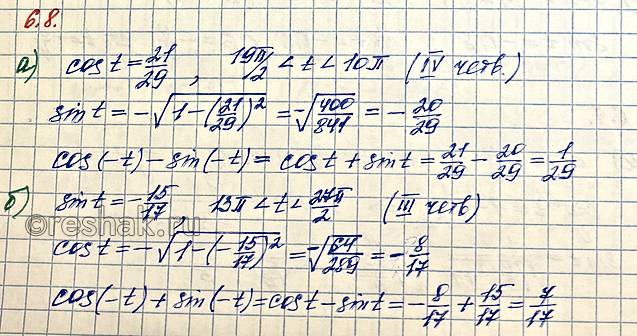 6.8.
а) cos t = 21/29 , 19π/2 < t < 10π (IV четв.)
sin t = -√(1-(21/29)²) = -√(400/841) = -20/29
cos(-t) - sin(-t) = cos t + sin t = 21/29 - 20/29 = 1/29
б) sin t = -15/17 , 13π < t < 27π/2 (III четв)
cos t = -√(1-(-15/17)²) = -√(64/289) = -8/17
cos(-t) + sin(-t) = cos t - sin t = -8/17 + 15/17 = 7/17
©reshak.ru